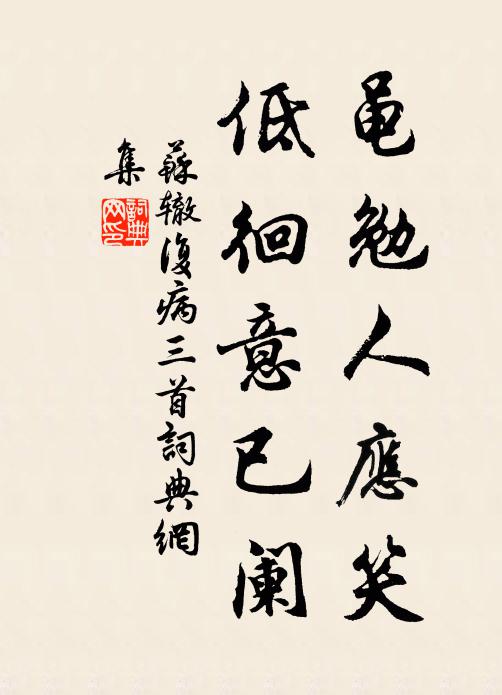 黾勉人應笑
低徊意已阑
蘇辙復病三首詞典網
集
詞典
网印